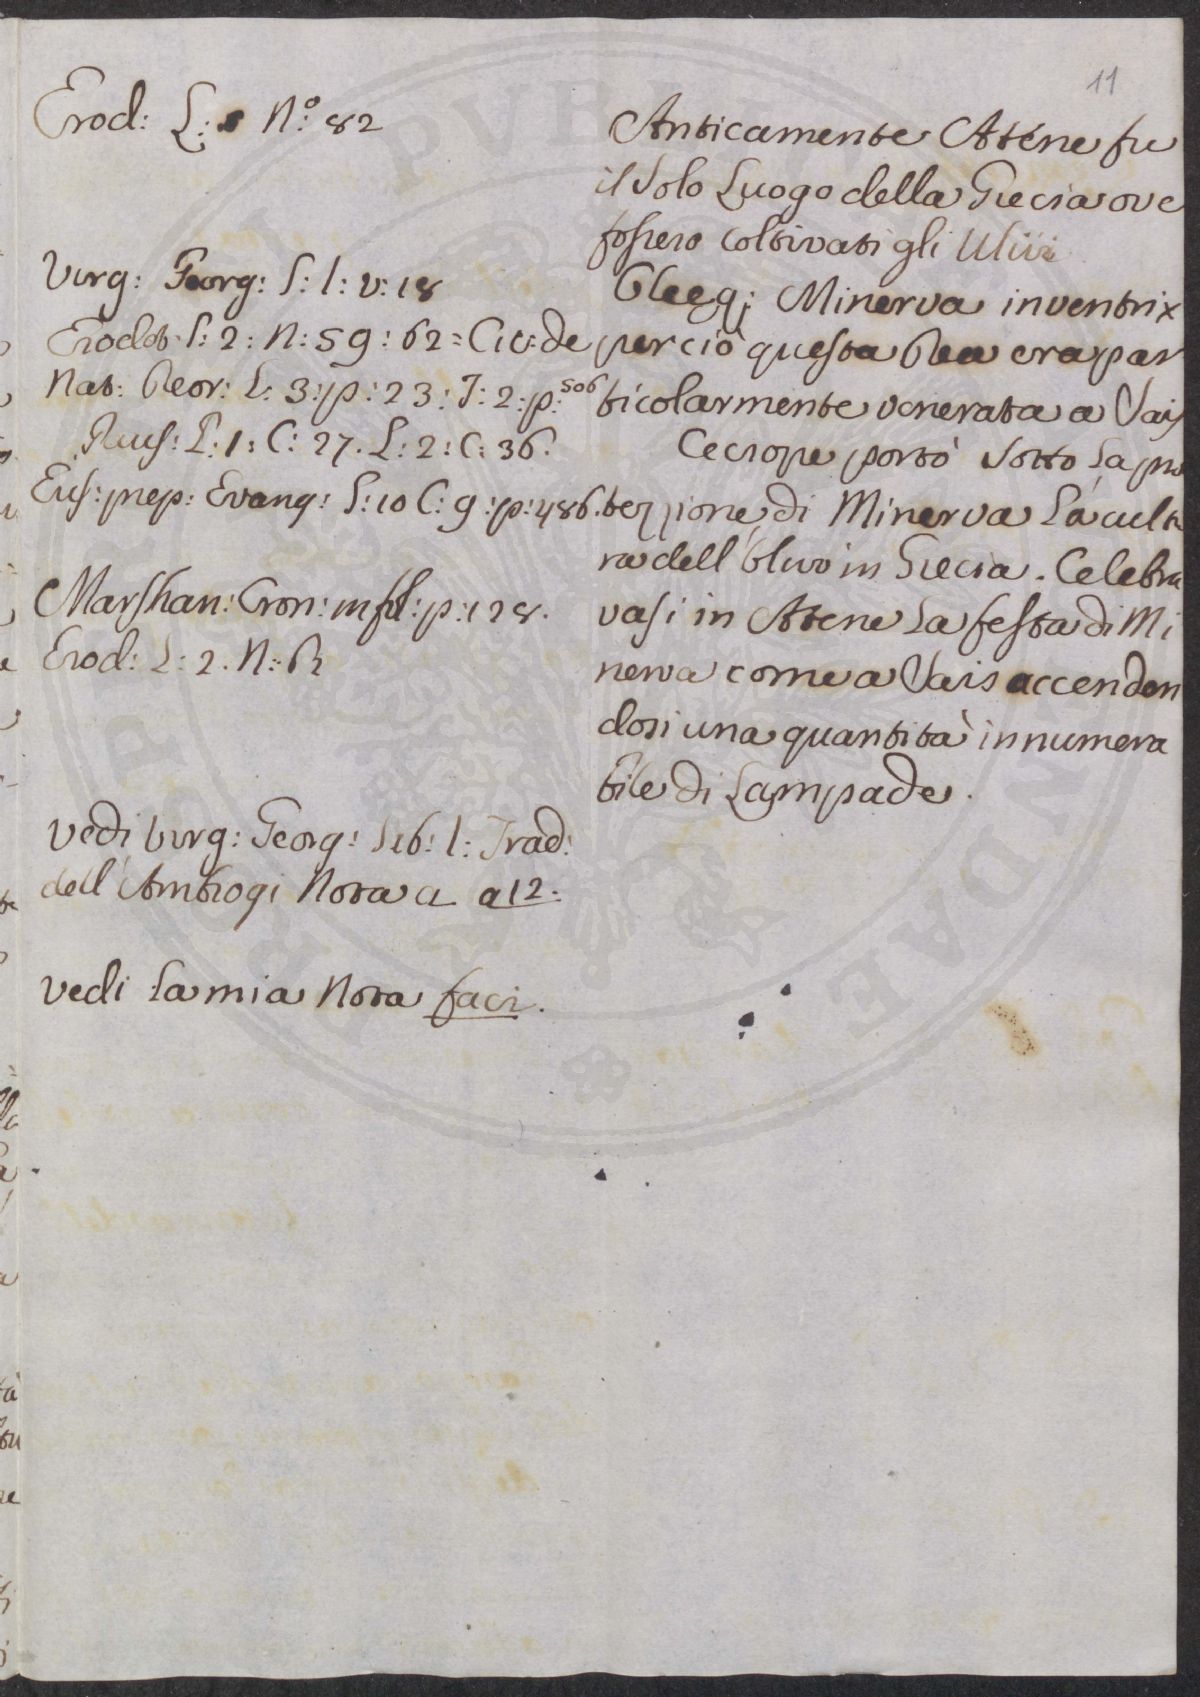 11
Erod: L: 5 N.º 82
Virg: Georg: L: 1: v: 18
Erodot. L: 2: N: 59: 62 = Cic: de
Nat: Deor: L: 3: p: 23: T: 2: p: 506
Paus: L: 1: C: 27. L: 2: C: 36.
Eus: prep: Evang: L: 10 C: 9: p: 486.
Marshan: Cron: in fol: p: 128.
Erod: L: 2. N: 62
Vedi Virg: Georg: Lib: 1: Trad:
dell'Ambrogi Nota a a 12.
Vedi La mia Nota faci.
Anticamente Aténe fu
il Solo Luogo della Grecia ove
fossero Coltivati gli Ulivi
Oleeq; Minerva inventrix
perciò questa Dea era par
ticolarmente venerata a Sais
Cecrope portò Sotto La pro
tezzione di Minerva La cultu
ra dell'Olivo in Grecia. Celebra
vasi in Atene La festa di Mi
nerva come a Sais accenden
dosi una quantità innumera
bile di Lampade.